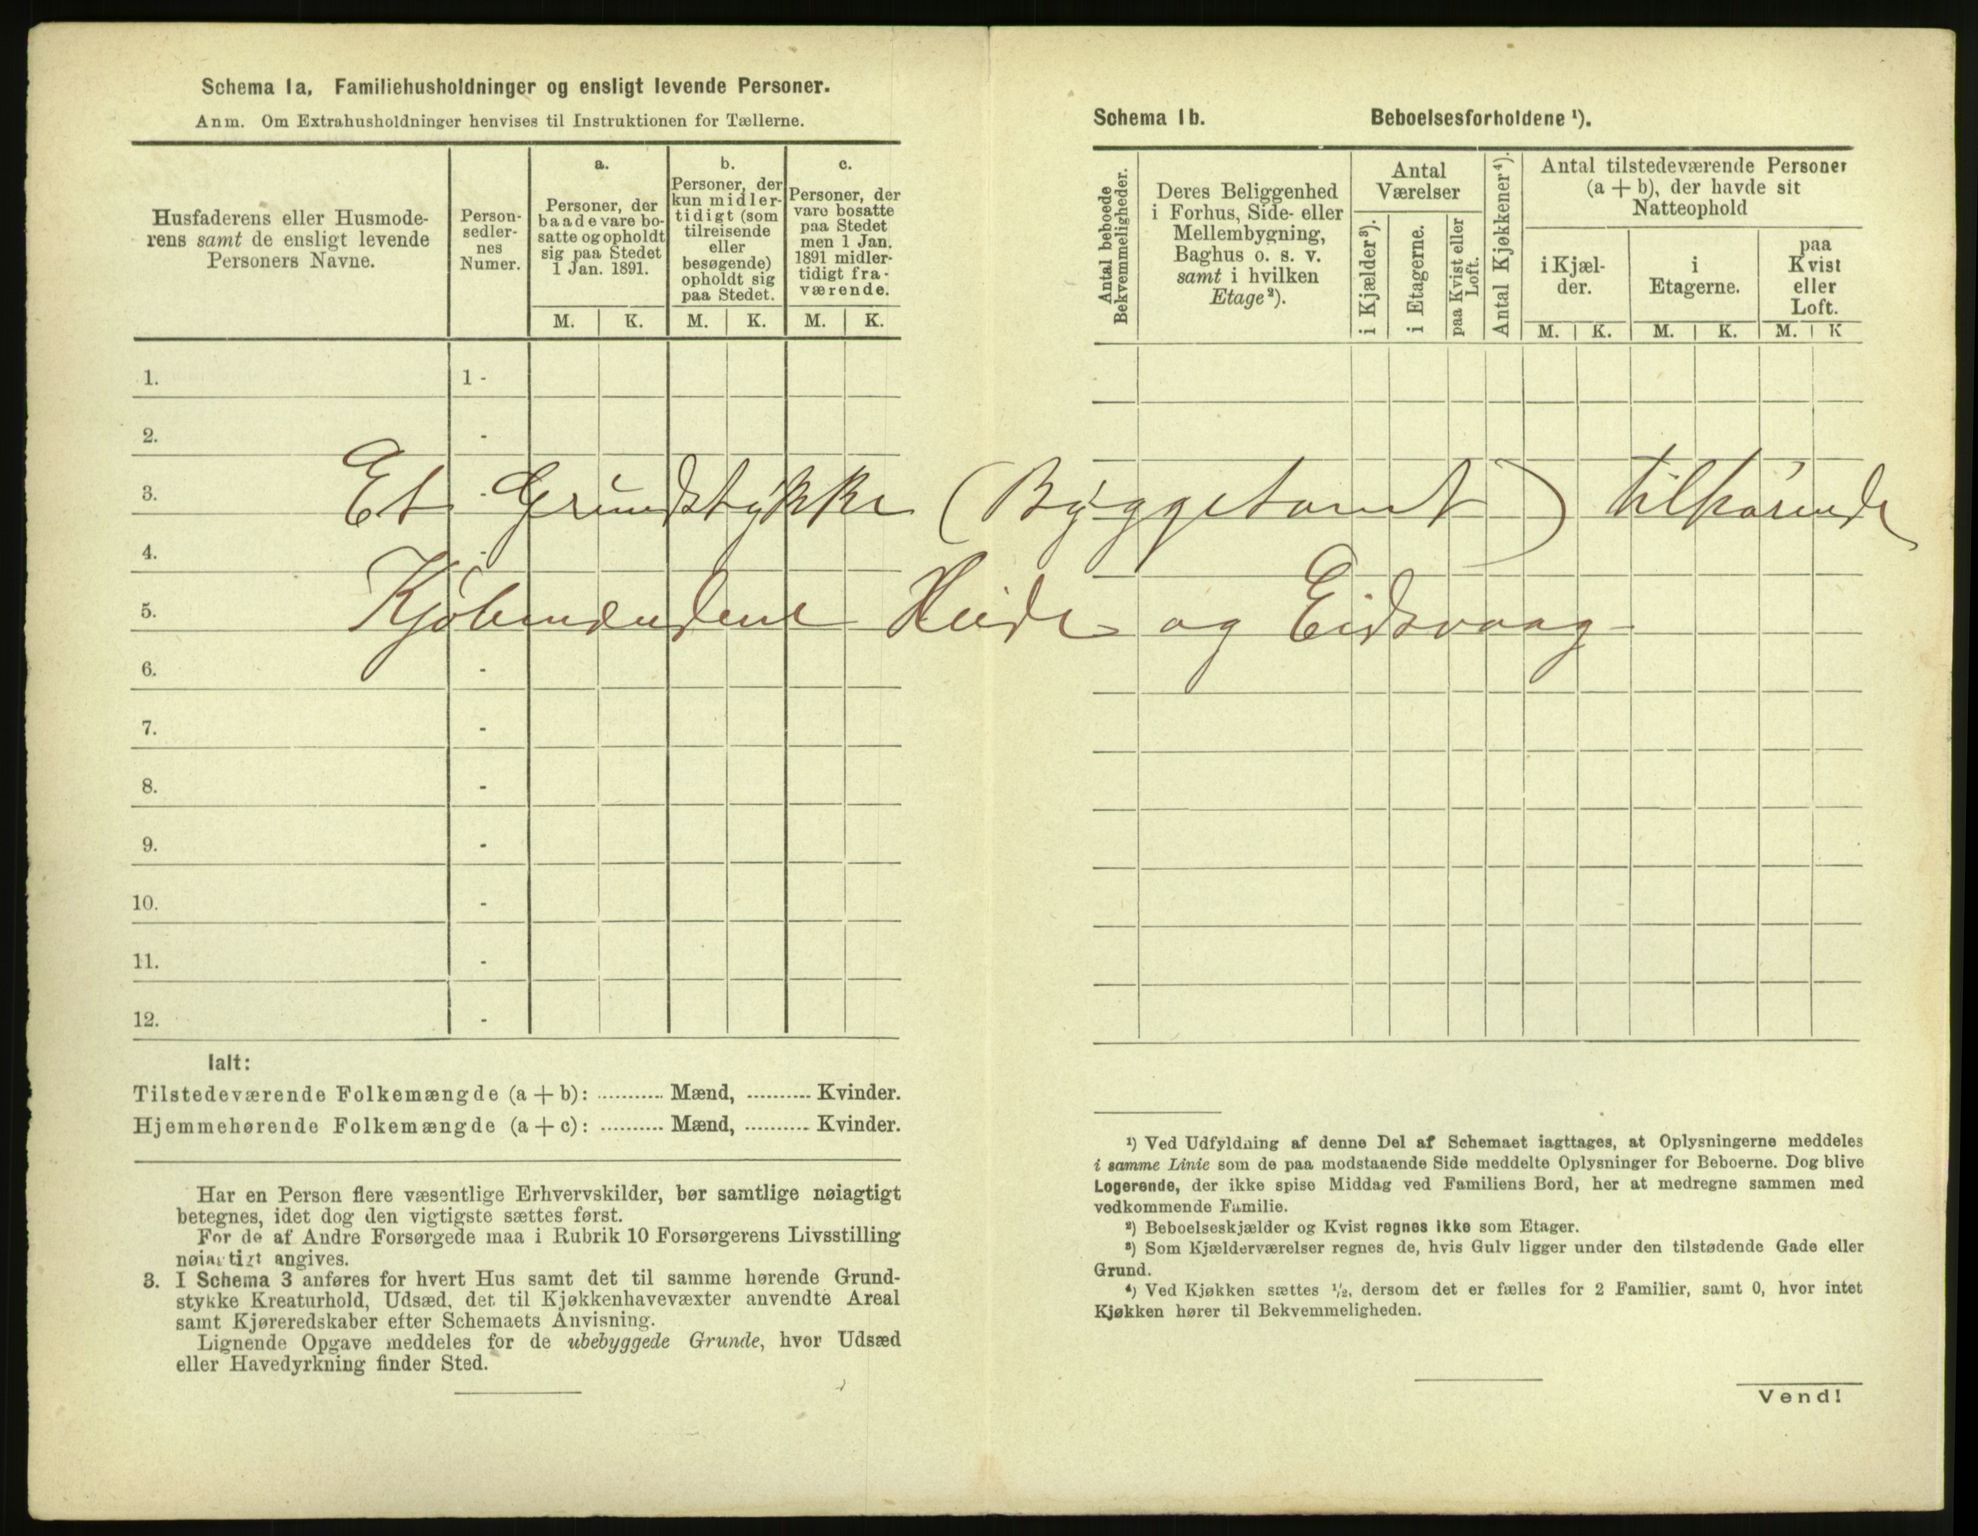 Schema 1a. Familiehusholdninger og ensligt levende Personer.
Anm. Om Extrahusholdninger henvises til Instruktionen for Tællerne.
Husfaderens eller Husmode-
rens samt de ensligt levende
Personers Navne.
Person-
sedler-
nes
Numer.
a.
Personer, der
baade vare bo-
satte og opholdt
sig paa Stedet
1 Jan. 1891.
b.
Personer, der
kun midler-
tidigt (som
tilreisende
eller
besøgende)
opholdt sig
paa Stedet.
c.
Personer, der
vare bosatte
paa Stedet
men 1 Jan.
1891 midler-
tidigt fra-
værende.
M. K. M. K. M. K.
1. 1 -
2. -
3. -
4. -
5.
6. -
7. -
8. -
9. -
10. -
11. -
12. -
Et Grundstykke (Byggetomt) tilhørende
Kjøbmændene Heide og Eidsvaag
Ialt:
Tilstedeværende Folkemængde (a + b): ........... Mænd, ........... Kvinder.
Hjemmehørende Folkemængde (a + c): ........... Mænd, ........... Kvinder.
Har en Person flere væsentlige Erhvervskilder, bør samtlige nøiagtigt
betegnes, idet dog den vigtigste sættes først.
For de af Andre Forsørgede maa i Rubrik 10 Forsørgerens Livsstilling
nøiagtigt angives.
3. I Schema 3 anføres for hvert Hus samt det til samme hørende Grund-
stykke Kreaturhold, Udsæd, det til Kjøkkenhavevæxter anvendte Areal
samt Kjøreredskaber efter Schemaets Anvisning.
Lignende Opgave meddeles for de ubebyggede Grunde, hvor Udsæd
eller Havedyrkning finder Sted.
Schema 1b. Beboelsesforholdene ¹).
Antal beboede
Bekvemmeligheder.
Deres Beliggenhed
i Forhus, Side- eller
Mellembygning,
Baghus o. s. v.
samt i hvilken
Etage ²).
Antal
Værelser
i Kjælder ³).
i Etagerne.
paa Kvist eller
Loft.
Antal Kjøkkener ⁴).
Antal tilstedeværende Personer
(a + b), der havde sit
Natteophold
i Kjæl-
der.
i
Etagerne.
paa
Kvist
eller
Loft.
M. K. M. K. M. K
¹) Ved Udfyldning af denne Del af Schemaet iagttages, at Oplysningerne meddeles
i samme Linie som de paa modstaaende Side meddelte Oplysninger for Beboerne. Dog blive
Logerende, der ikke spise Middag ved Familiens Bord, her at medregne sammen med
vedkommende Familie.
²) Beboelseskjælder og Kvist regnes ikke som Etager.
³) Som Kjælderværelser regnes de, hvis Gulv ligger under den tilstødende Gade eller
Grund.
⁴) Ved Kjøkken sættes ¹/₂, dersom det er fælles for 2 Familier, samt 0, hvor intet
Kjøkken hører til Bekvemmeligheden.
Vend!